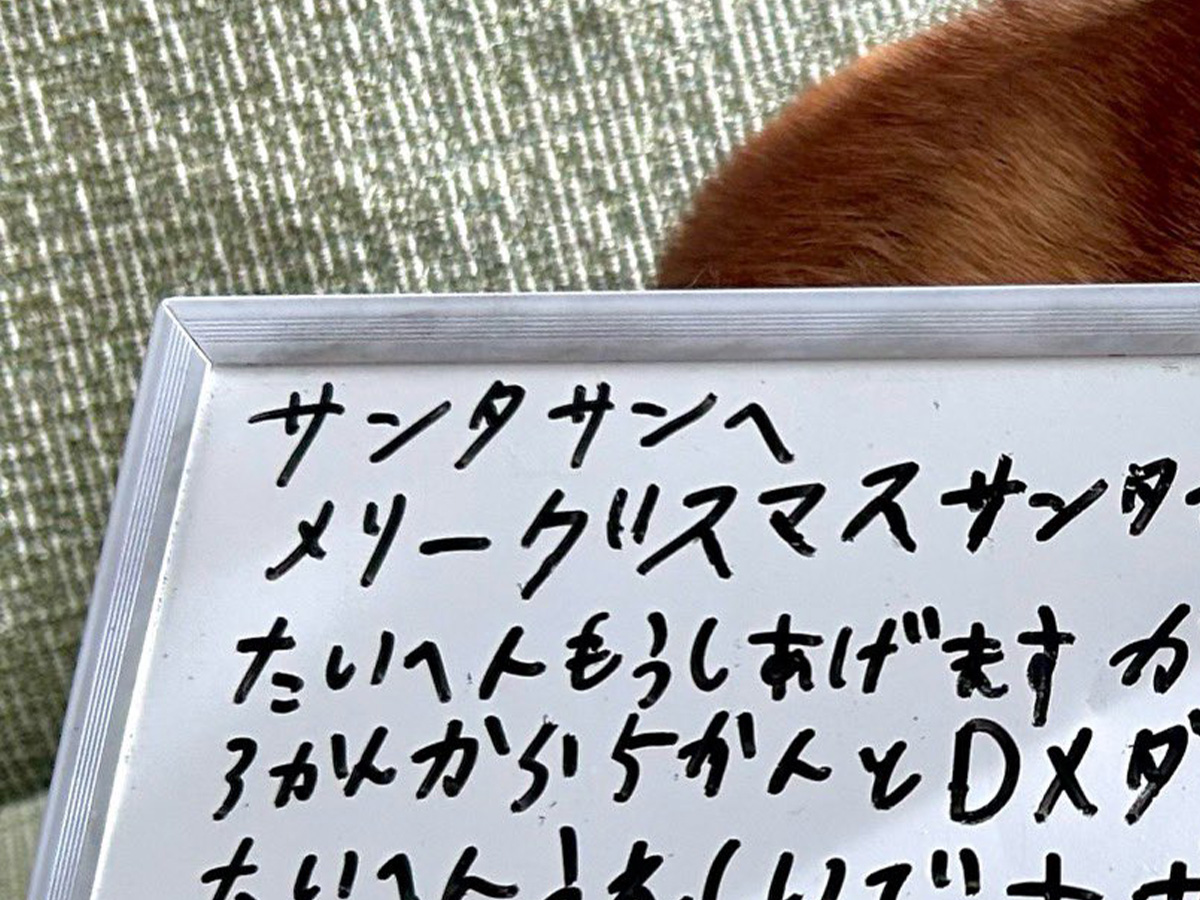 サンタサンへ
メリーグリスマスサンタ
たいへんもうしあげます カ
3かんから5かんとDXダ
たいへん